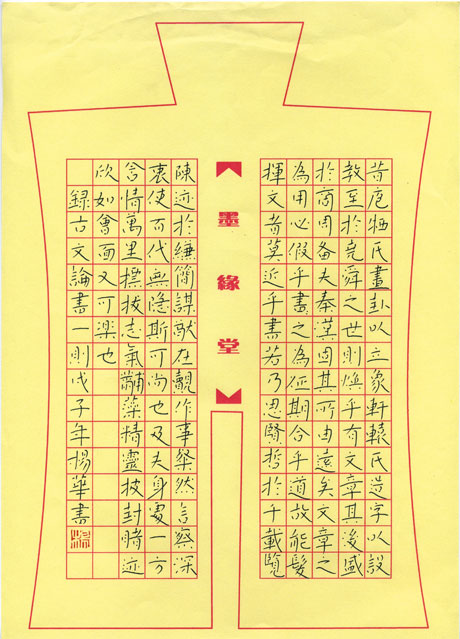 昔庖牺氏畫卦以立象軒轅氏造字以設
教至於堯舜之世則煥乎有文章其後盛
於商周备夫秦漢固其所由遠矣文章之
為用必假乎書之為征期合乎道故能髮
揮文者莫近乎書若乃思賢哲於千載覽
墨緣堂
陳迹於縑簡謀猷在覿作事粲然言察深
衷使百代無隐斯可尚也及夫身處一方
含情萬里標拔志氣黼藻精靈披封睹迹
欣如會面又可楽也
録古文論書一則戊子年楊華書